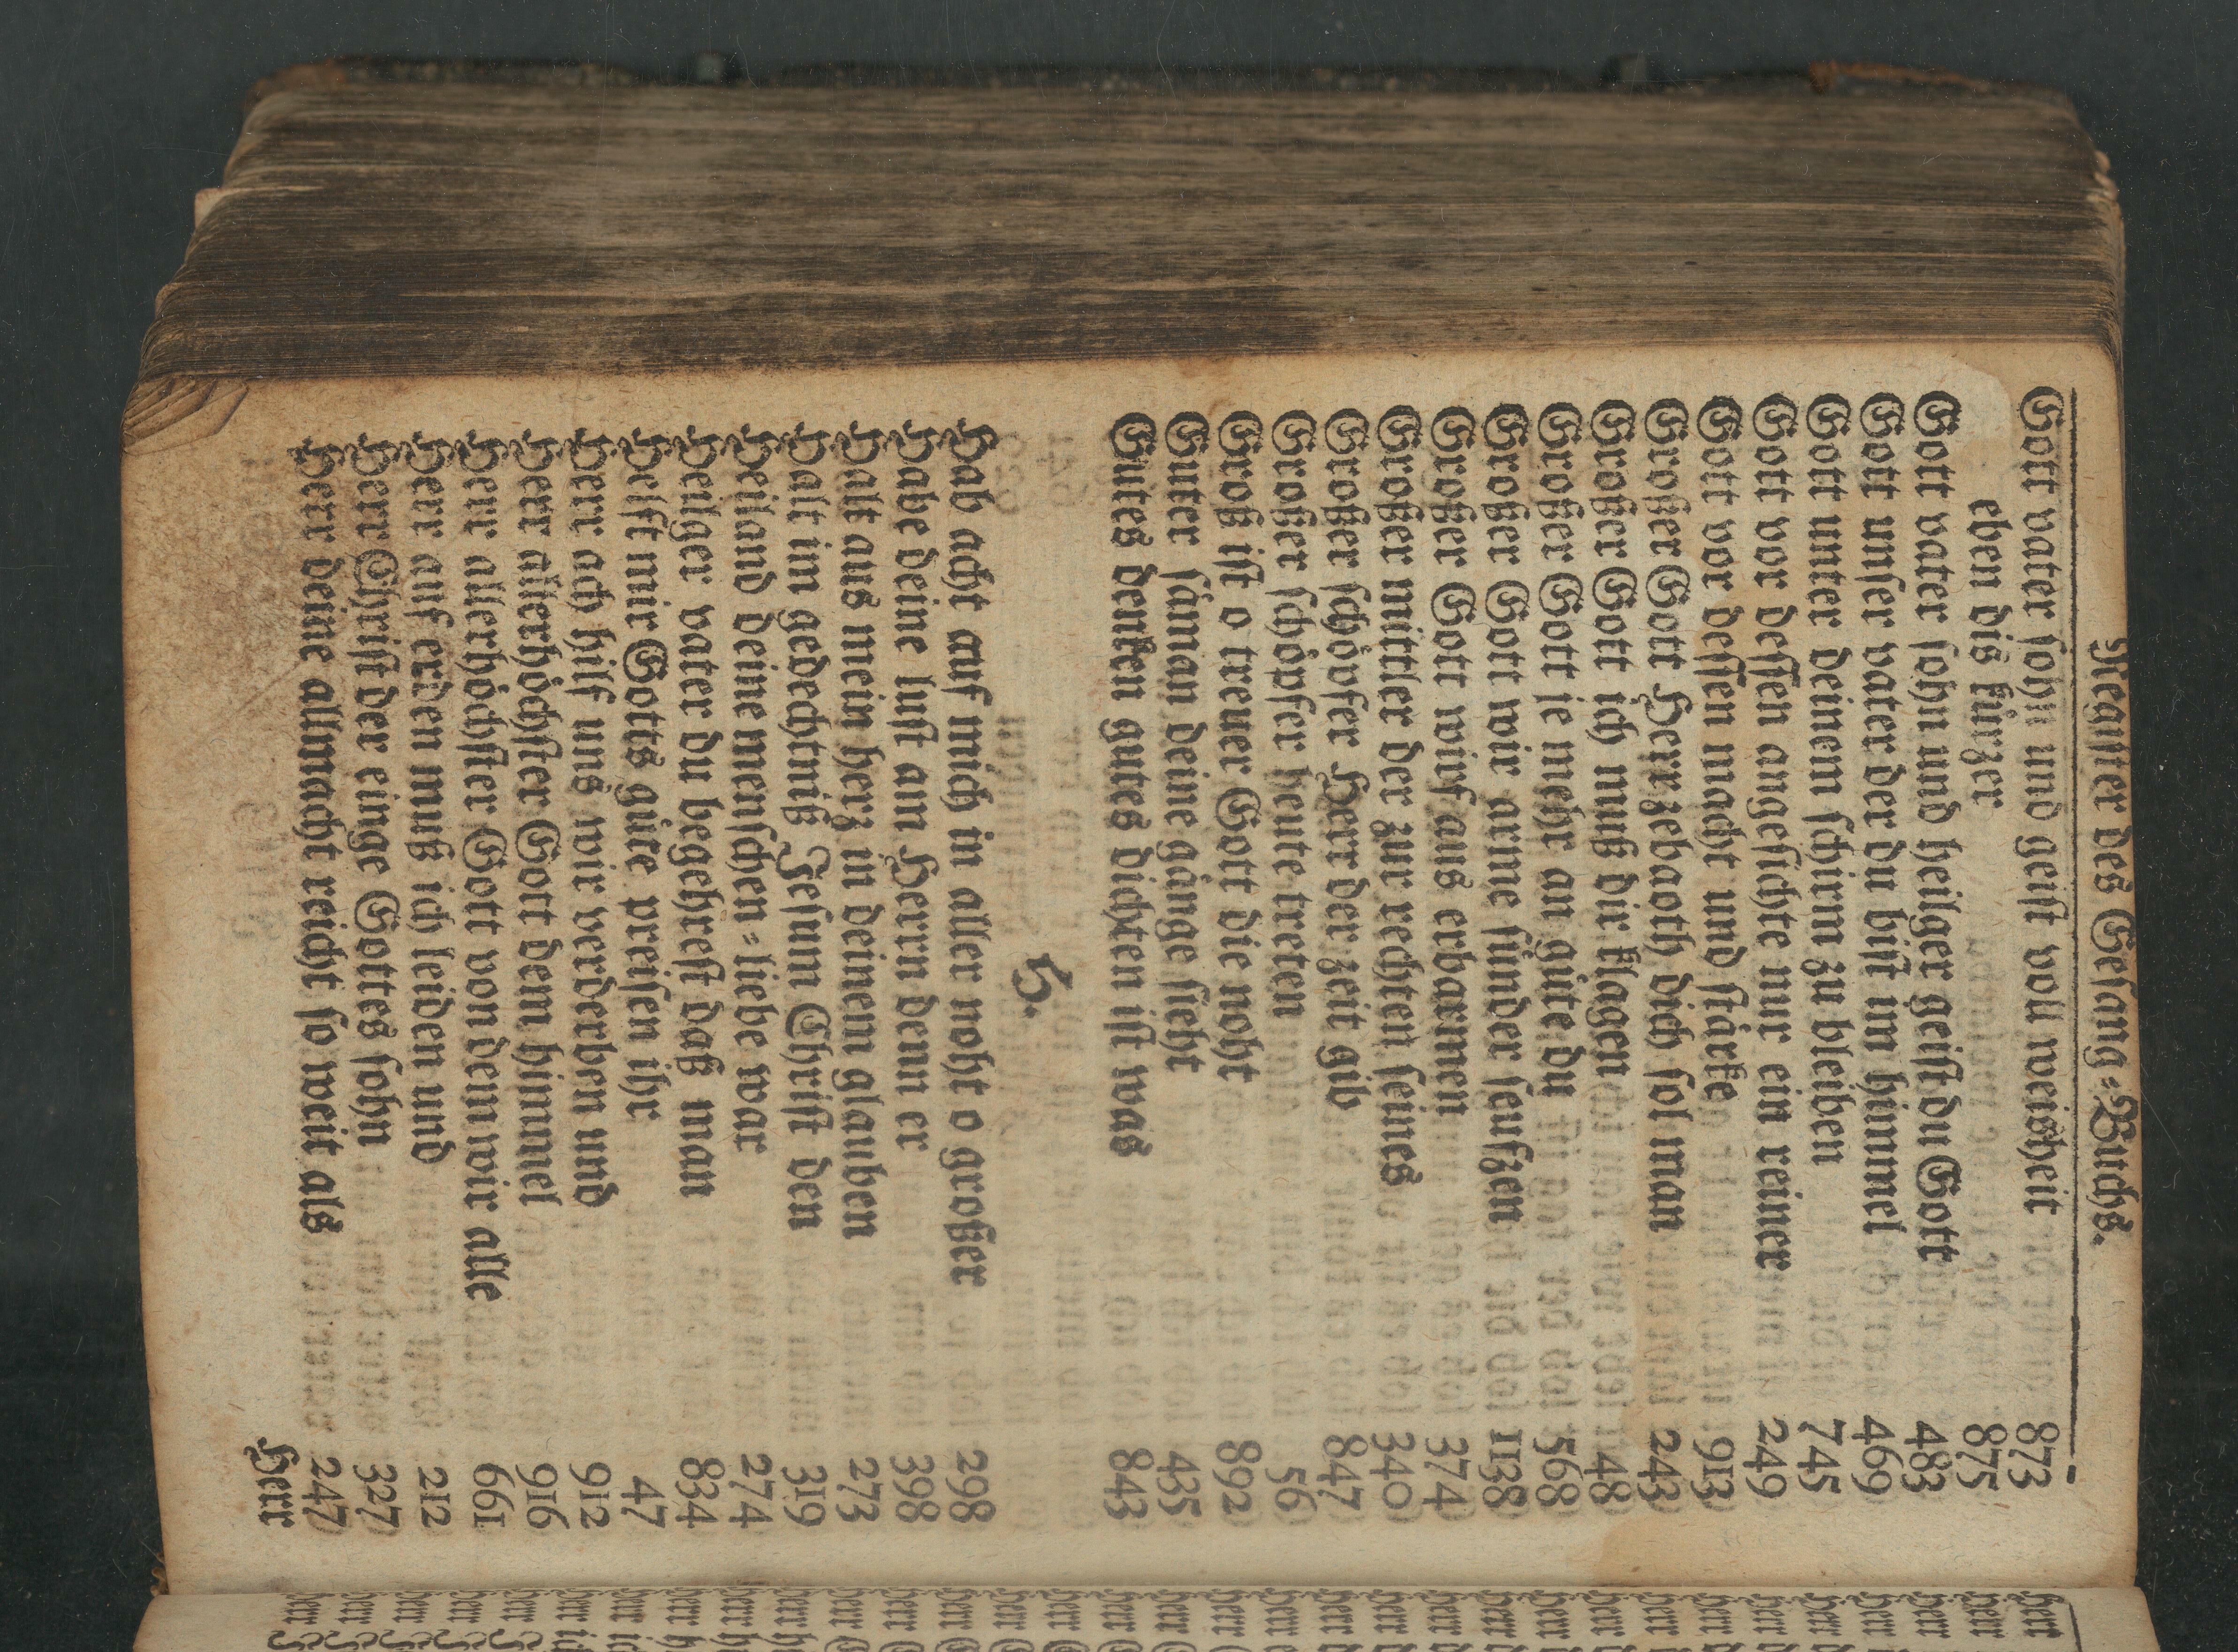 Register des Gesang-Buchs.
Gott vater sohn und geist voll weißheit 873
eben dis kürzer 875
Gott vater sohn und heilger geist du Gott 483
Gott unser vater der du bist im himmel 469
Gott unter deinem schirm zu bleiben 745
Gott vor dessen angesichte nur ein reiner 249
Gott vor dessen macht und stärke 913
Grosser Gott Herr zebaoth dich sol man 243
Grosser Gott ich muß dir klagen 48
Grosser Gott je mehr an güte du 568
Grosser Gott wir arme sünder seufzen 1138
Grosser Gott wirf aus erbarmen 374
Grosser mittler der zur rechten seines 340
Grosser schöpfer Herr der zeit gib 847
Grosser schöpfer heute treten 56
Groß ist o treuer Gott die noht 892
Guter säman deine gänge sieht 435
Gutes denken gutes dichten ist was 843
H.
Hab acht auf mich in aller noht o grosser 298
Habe deine lust am Herrn denn er 398
Halt aus mein herz in deinem glauben 273
Halt im gedechtniß Jesum Christ den 319
Heiland deine menschen-liebe war 274
Heilger vater du begehrest daß man 834
Helft mir Gotts güte preisen ihr 47
Herr ach hilf uns wir verderben und 912
Herr allerhöchster Gott dem himmel 916
Herr allerhöchster Gott von dem wir alle 661
Herr auf erden muß ich leiden und 212
Herr Christ der einge Gottes sohn 327
Herr deine allmacht reicht so weit als 247
Herr